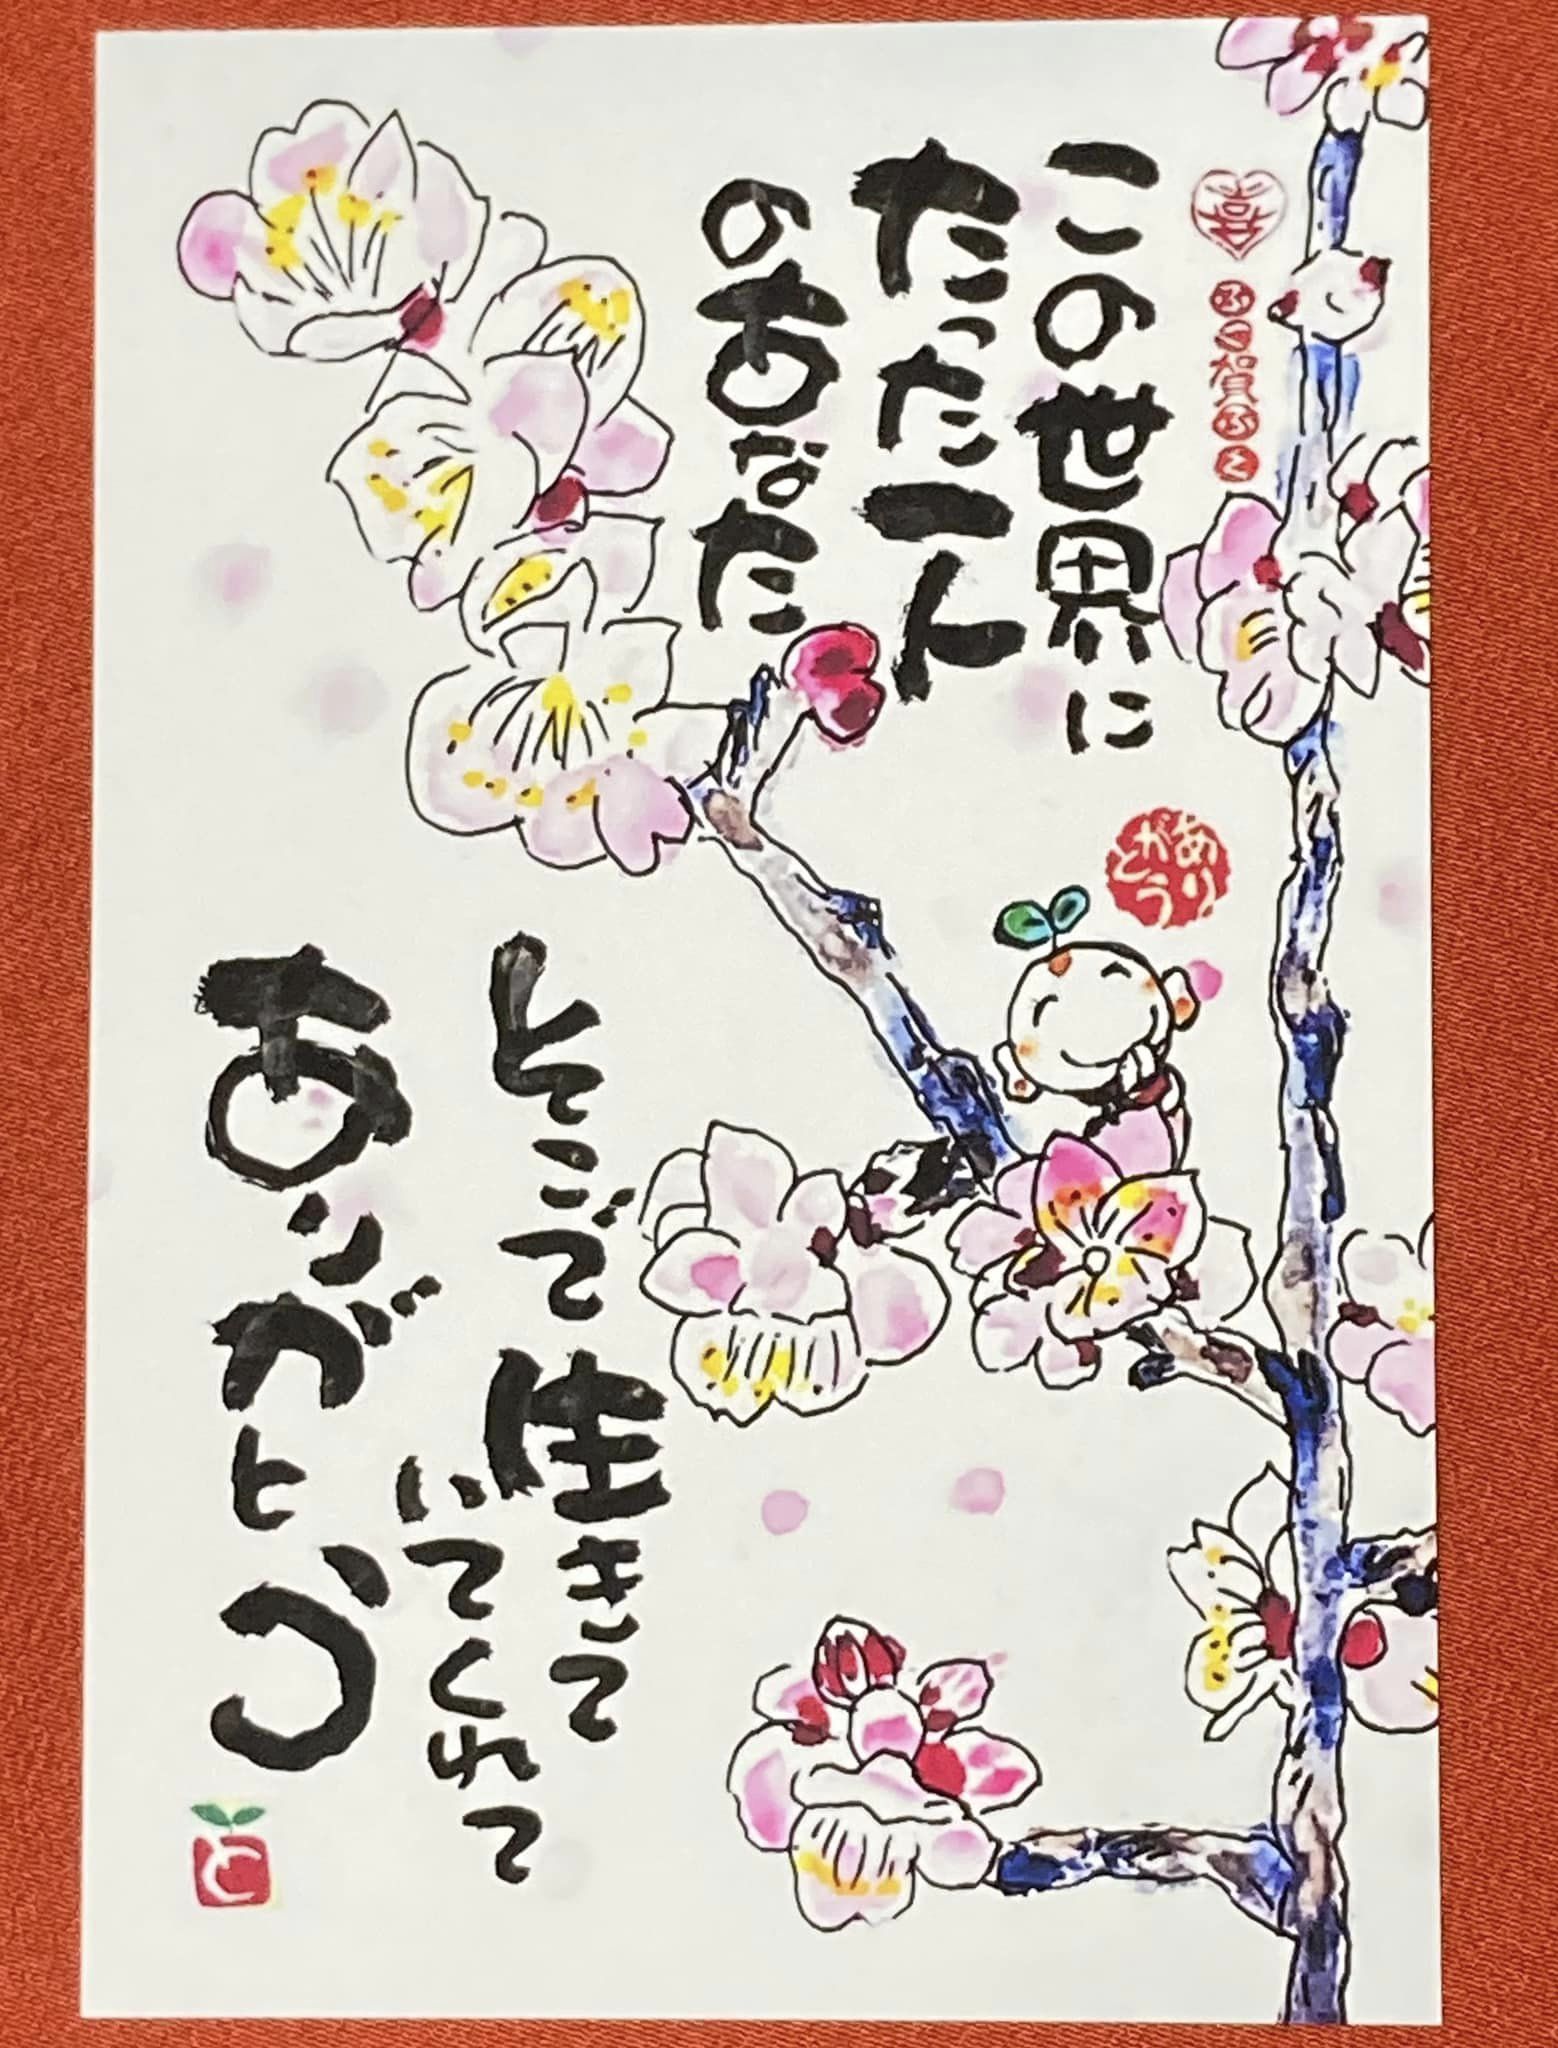 喜
ふく賀ふこ
この世界に
たった一人
のあなた
ありがとう
そこで生きて
いてくれて
ありがとう
と